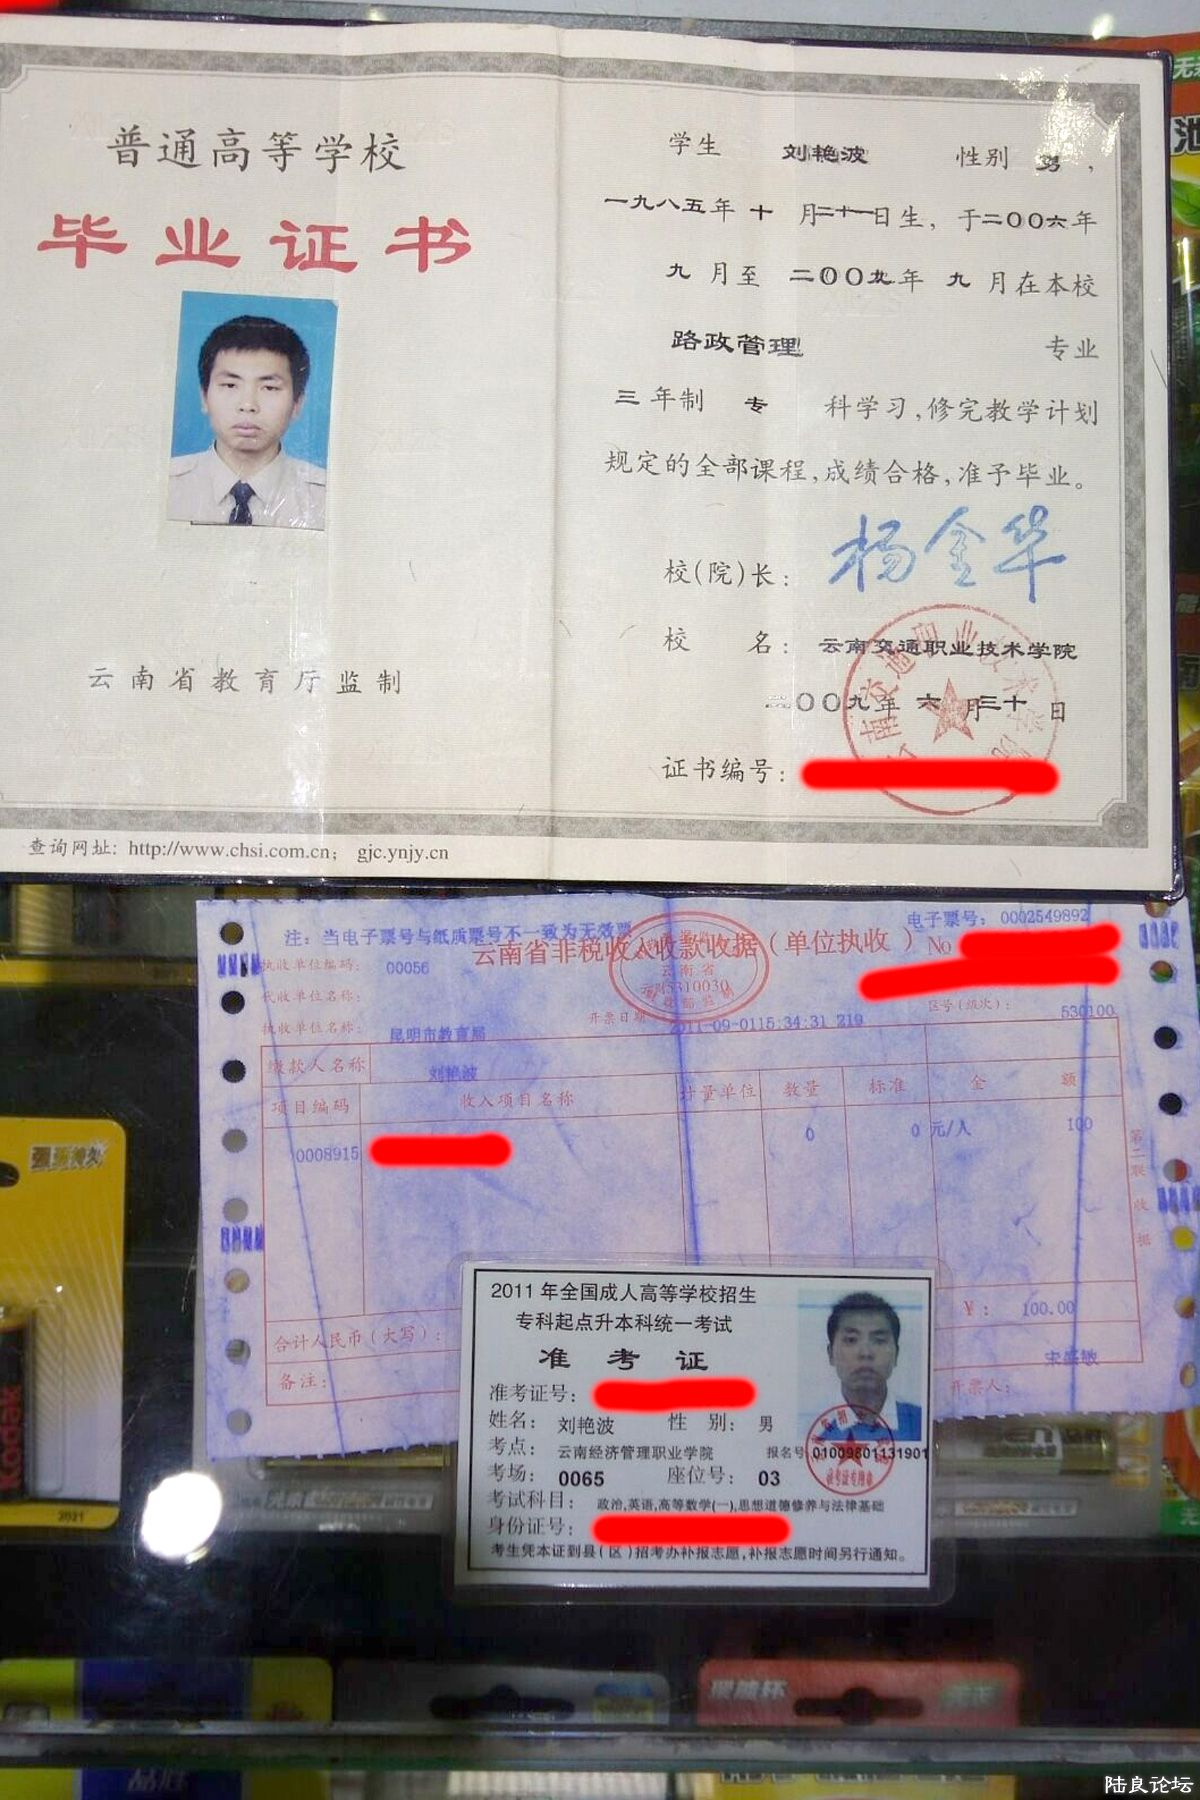 普通高等学校
毕业证书
云南省教育厅监制
查询网址: http://www.chsi.com.cn; gjc.ynjy.cn
学生 刘艳波 性别 男,
一九八五年 十 月二十一日生, 于二〇〇六年
九 月至 二〇〇九年 九 月在本校
路政管理 专业
三 年制 专 科学习,修完教学计划
规定的全部课程,成绩合格,准予毕业。
校(院)长: 杨金华
校 名: 云南交通职业技术学院
二〇〇九年 六 月三十 日
证书编号:
注: 当电子票号与纸质票号不一致为无效票
电子票号: 0002549892
云南省非税收入收款收据(单位执收)No
执收单位编码: 00056
代收单位名称:
区号(级次): 530100
执收单位名称: 昆明市教育局
开票日期 2011-09-0115:34:31 219
缴款人名称 刘艳波
项目编码 收入项目名称 计量单位 数量 标准 金 额
0008915 0 0 元/人 100
第二联 收据
合计人民币(大写): ¥: 100.00
备注: 开票人:
2011 年全国成人高等学校招生
专科起点升本科统一考试
准 考 证
准考证号:
姓名: 刘艳波 性 别: 男
考点: 云南经济管理职业学院 报名号 01009801131901
考场: 0065 座位号: 03
考试科目: 政治,英语,高等数学(一),思想道德修养与法律基础
身份证号:
考生凭本证到县(区)招考办补报志愿,补报志愿时间另行通知。
Kodak
2021
陆良论坛